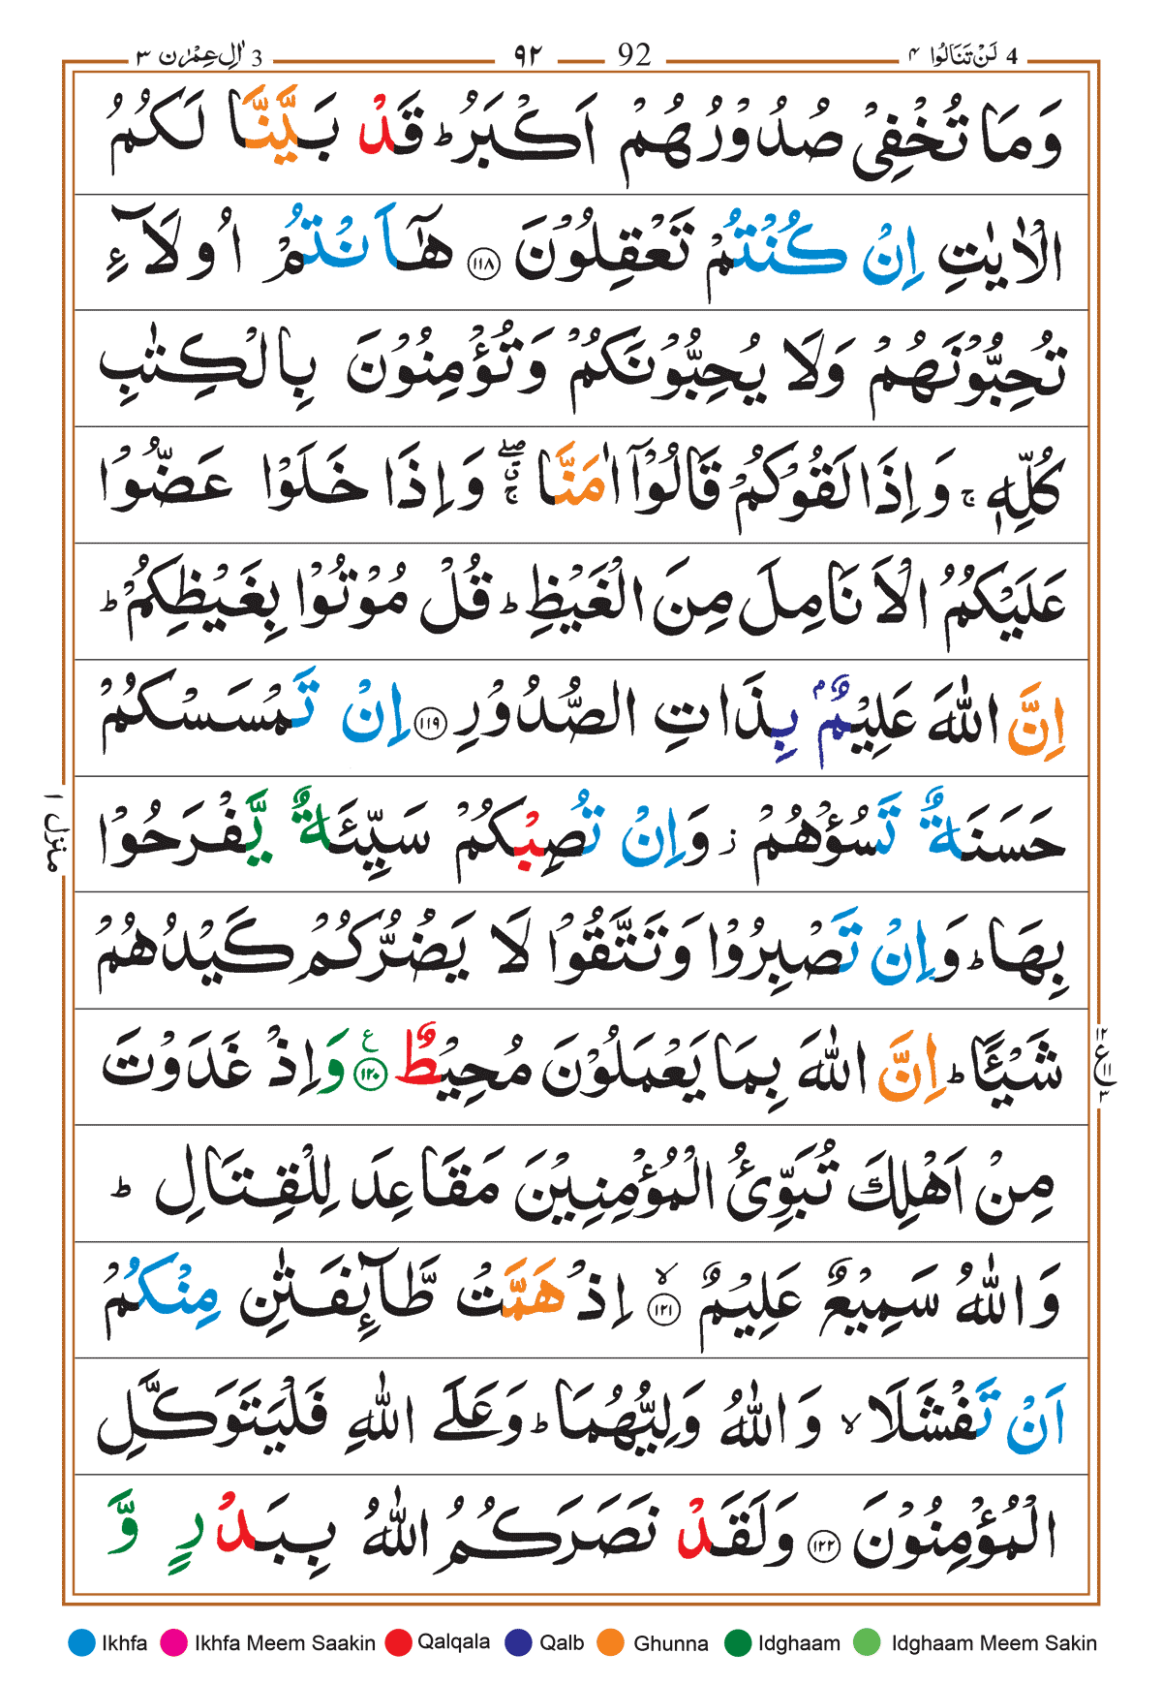 3 اٰلِ عِمْرٰن ٣ ٩٢ 92 لَنْ تَنَالُوا ٤ 4
وَمَا تُخْفِیْ صُدُوْرُهُمْ اَكْبَرُ ؕ قَدْ بَیَّنَّا لَكُمُ
الْاٰیٰتِ اِنْ كُنْتُمْ تَعْقِلُوْنَ ١١٨ هٰۤاَنْتُمْ اُولَآءِ
تُحِبُّوْنَهُمْ وَلَا یُحِبُّوْنَكُمْ وَتُؤْمِنُوْنَ بِالْكِتٰبِ
كُلِّهٖ ۚ وَاِذَا لَقُوْكُمْ قَالُوْۤا اٰمَنَّا ۖۗۚ وَاِذَا خَلَوْا عَضُّوْا
عَلَیْكُمُ الْاَنَامِلَ مِنَ الْغَیْظِ ؕ قُلْ مُوْتُوْا بِغَیْظِكُمْ ؕ
اِنَّ اللّٰهَ عَلِیْمٌۢ بِذَاتِ الصُّدُوْرِ ١١٩ اِنْ تَمْسَسْكُمْ
حَسَنَةٌ تَسُؤْهُمْ ؗ وَاِنْ تُصِبْكُمْ سَیِّئَةٌ یَّفْرَحُوْا
بِهَا ؕ وَاِنْ تَصْبِرُوْا وَتَتَّقُوْا لَا یَضُرُّكُمْ كَیْدُهُمْ
شَیْـًٔا ؕ اِنَّ اللّٰهَ بِمَا یَعْمَلُوْنَ مُحِیْطٌ ١٢٠ ع وَاِذْ غَدَوْتَ
مِنْ اَهْلِكَ تُبَوِّئُ الْمُؤْمِنِیْنَ مَقَاعِدَ لِلْقِتَالِ ؕ
وَاللّٰهُ سَمِیْعٌ عَلِیْمٌ ١٢١ ۙ اِذْ هَمَّتْ طَّآىِٕفَتٰنِ مِنْكُمْ
اَنْ تَفْشَلَا ۙ وَاللّٰهُ وَلِیُّهُمَا ؕ وَعَلَی اللّٰهِ فَلْیَتَوَكَّلِ
الْمُؤْمِنُوْنَ ١٢٢ وَلَقَدْ نَصَرَكُمُ اللّٰهُ بِبَدْرٍ وَّ
منزل ١
١٢
ع ١١
٣
Ikhfa Ikhfa Meem Saakin Qalqala Qalb Ghunna Idghaam Idghaam Meem Sakin